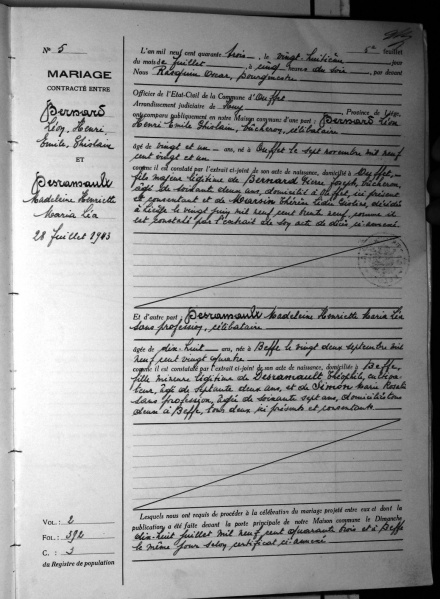 N° 5
MARIAGE
CONTRACTÉ ENTRE
Bernard
Léon, Henri,
Emile, Ghislain
ET
Desramault
Madeleine Henriette
Maria Léa
28 Juillet 1943
VOL. : 2
FOL. : 392
C. : 3
du Registre de population
5e feuillet
L'an mil neuf cent quarante trois, le vingt-huitième jour
du mois de juillet à cinq heures du soir par devant
Nous Bourgmestre
Officier de l'Etat-Civil de la Commune d'Ouffet
Arrondissement judiciaire de Huy, Province de Liége,
ont comparu publiquement en notre Maison commune d'une part : Bernard Léon
Henri Emile Ghislain, célibataire
âgé de vingt et un ans, né à Ouffet le sept novembre mil neuf
cent vingt et un
comme il est constaté par l'extrait ci-joint de son acte de naissance, domicilié à Ouffet,
fils majeur légitime de Bernard Pierre Joseph,
âgé de soixante deux ans, domicilié à Ouffet, ici présent
et consentant et de Marsin décédée
à le vingt juin mil neuf cent trente neuf, comme il
est constaté par l'extrait de son acte de décès ci-annexé
Et d'autre part : Desramault Madeleine Henriette Maria Léa
sans profession, célibataire
âgée de dix-huit ans, née à Beffe le vingt deux septembre mil
neuf cent vingt quatre
comme il est constaté par l'extrait ci-joint de son acte de naissance, domiciliée à Beffe,
fille mineure légitime de Desramault Théophile, cultiva-
teur, âgé de septante deux ans, et de Simon Marie
sans profession, âgée de soixante sept ans, domiciliés tous
deux à Beffe, tous deux ici présents et consentants
Lesquels nous ont requis de procéder à la célébration du mariage projeté entre eux et dont la
publication a été faite devant la porte principale de notre Maison commune le Dimanche
dix-huit juillet mil neuf cent quarante trois et à Beffe
le même jour selon certificat ci-annexé